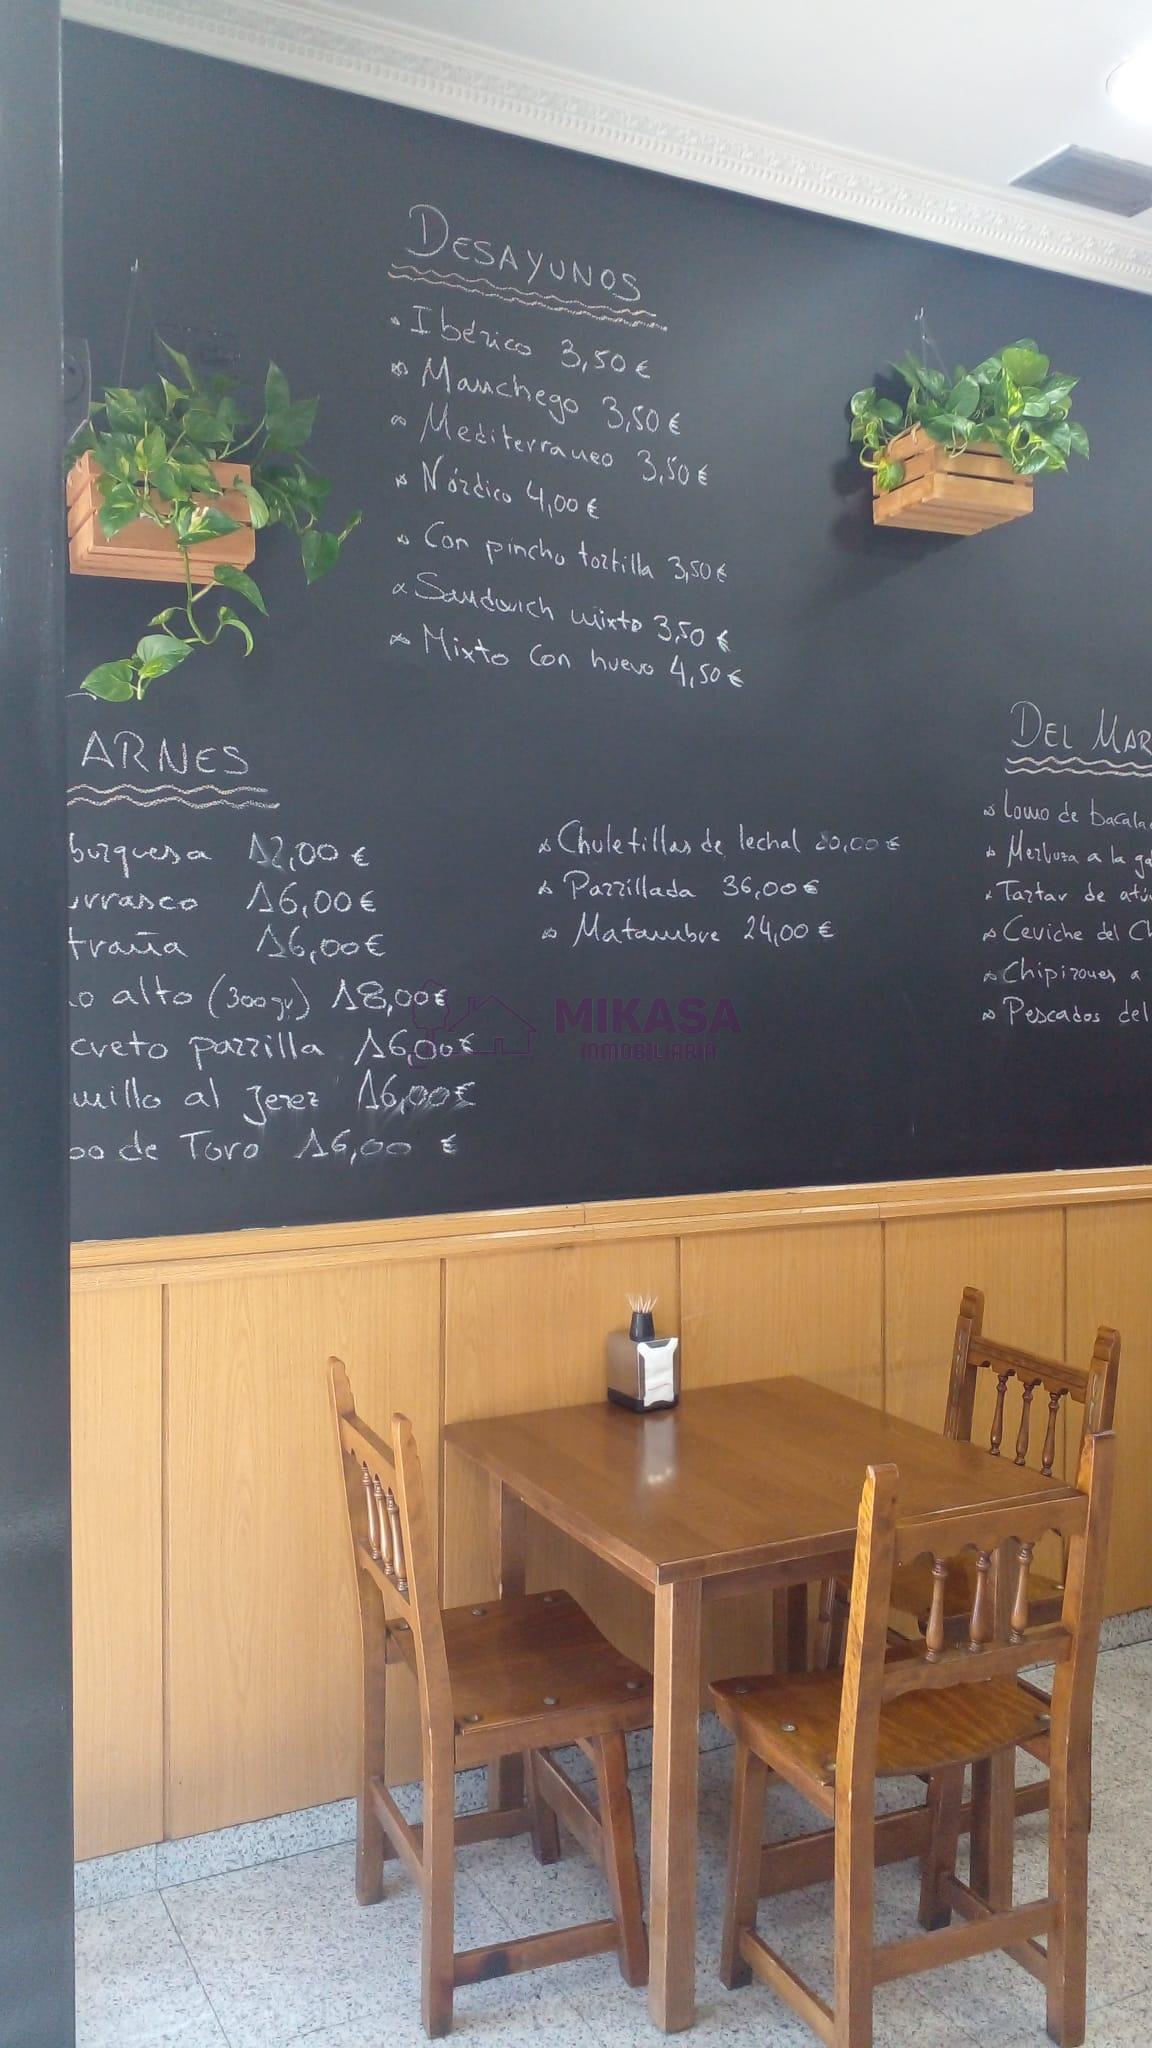 DESAYUNOS
Ibérico 3,50 €
Manchego 3,50 €
Mediterraneo 3,50 €
Nórdico 4,00 €
Con pincho tortilla 3,50 €
Sandwich mixto 3,50 €
Mixto con huevo 4,50 €
ARNES
burguesa 12,00 €
urrasco 16,00 €
traña 16,00 €
o alto (300gr) 18,00 €
creto parrilla 16,00 €
millo al Jerez 16,00 €
bo de Toro 16,00 €
Chuletillas de lechal 20,00 €
Parrillada 36,00 €
Matambre 24,00 €
DEL MAR
Lomo de bacala
Merluza a la ga
Tartar de atú
Ceviche del Ch
Chipirones a
Pescados del
MIKASA
INMOBILIARIA